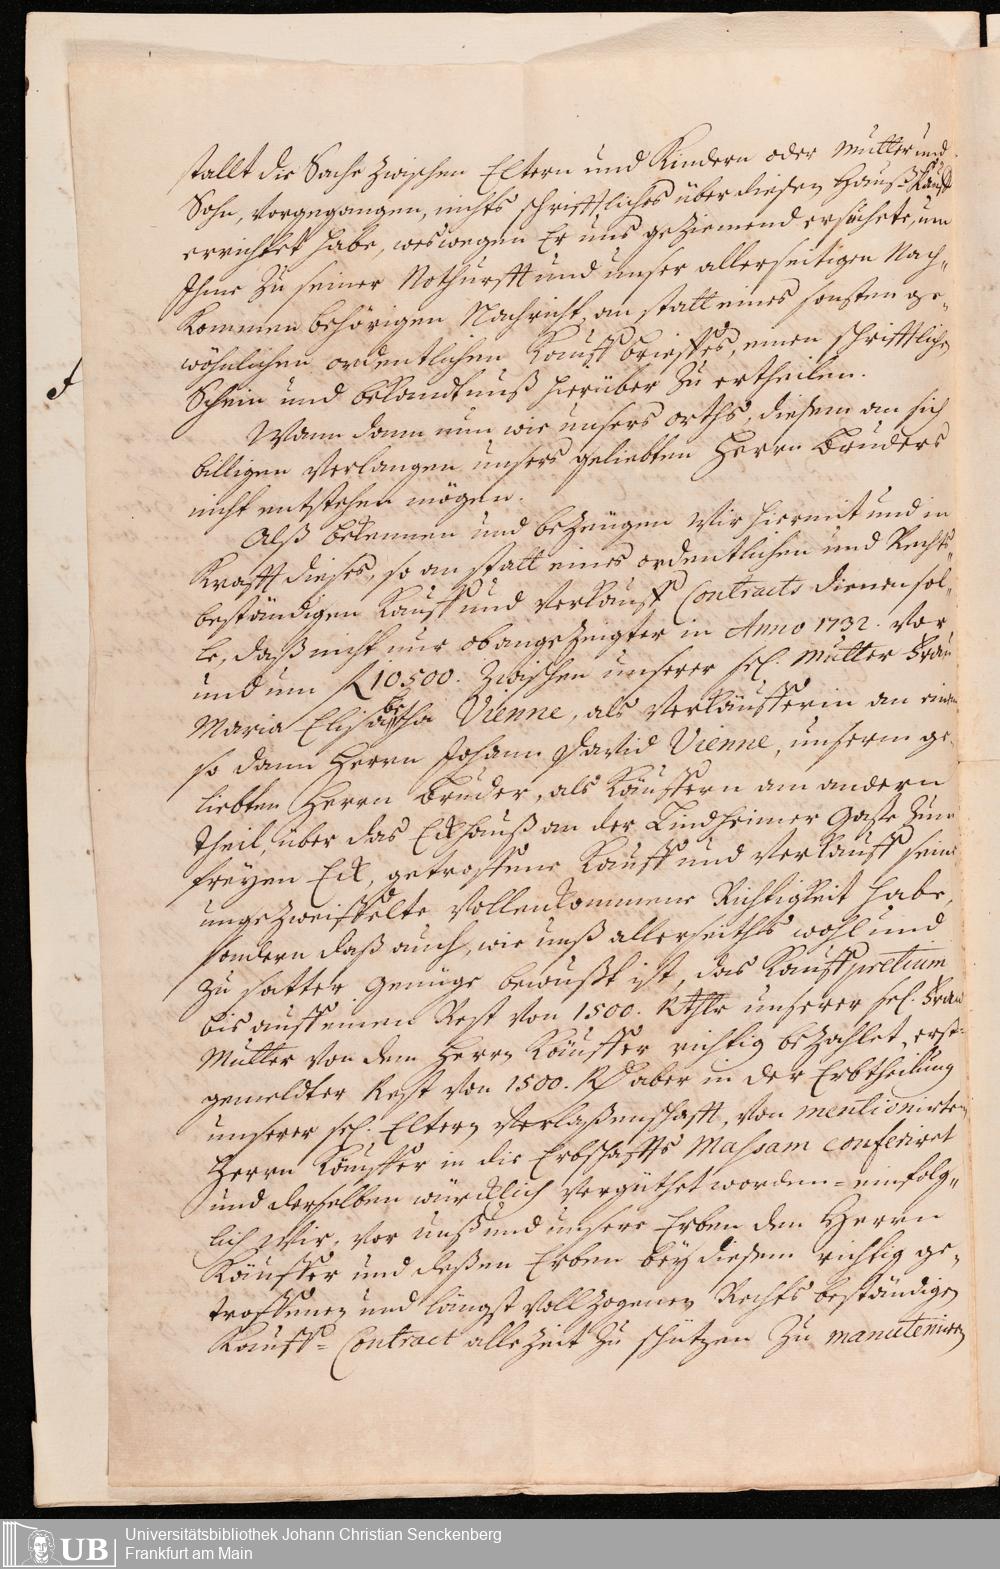 stallt die Sache zwischen Eltern und Kindern oder Mutter und
Sohn, vorgegangen, nichts schrifftliches über diesen Hauß-Kauff
errichtet habe, weswegen Er uns geziemend ersuchete, um
Ihme zu seiner Nothurfft und unser allerseitigen Nach„
kommen behörigen Nachricht, an statt eines sonsten ge„
wöhnlichen ordentlichen Kauff brieffes, einen schrifftlichen
Schein und bekandtnuß hierüber zu ertheilen.
Wann dann nun wir unsers orths, diesem an sich
billigen Verlangen unsers geliebten Herrn Bruders
nicht entstehen mögen.
Alß bekennen und bezeugen Wir hiermit und in
Krafft dieses, so an statt eines ordentlichen und Rechts„
beständigen Kauff und Verkauff Contracts dienen sol„
le, daß nicht nur obangezeigter in Anno 1732. vor
und um fl 10500. zwischen unserer sel. Mutter Frau
Maria Elisabetha Vienne, als Verkäufferin an einem
so dann Herrn Johann David Vienne, unserm ge„
liebten Herrn Bruder, als Käuffern am andern
Theil, über das Eckhauß an der Lindheimer Gaße zum
freyen Eck, getroffene Kauff und Verkauff seine
ungezweiffelte Vollenkommene Richtigkeit habe,
sondern daß auch, wie unß allerseiths wohl und
zu satter genüge bewußt ist, das Kauffpretium
bis auff einen Rest von 1500. Rthlr unserer sel. Frau
Mutter von dem Herrn Käuffer richtig bezahlet, erst=
gemeldter Rest von 1500. R aber in der Erbtheilung
unserer sel. Eltern Verlaßenschafft, von mentionirten
Herrn Käuffer in die Erbschaffts Massam conferiret
und derselben würcklich vergüthet worden = einfolg„
lich Wir, vor unß und unsere Erben den Herrn
Käuffer und deßen Erben bey diesem richtig ge„
troffenen und längst vollzogenen Rechts beständigen
Kauff= Contract allezeit zu schützen zu manuteniren
UB
Universitätsbibliothek Johann Christian Senckenberg
Frankfurt am Main